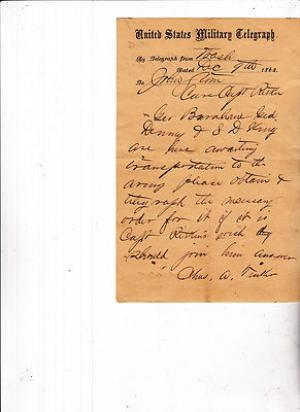 United States Military Telegraph.
By Telegraph from Wash
Dated Dec 9th 1862.
To John
Care Capt
Geo Ged
Denny & S D King
are here awaiting
transportation to the
army please obtain &
telegraph the necessary
order for it if it is
Capt wish they
should join him answer
Chas. A. Tinker